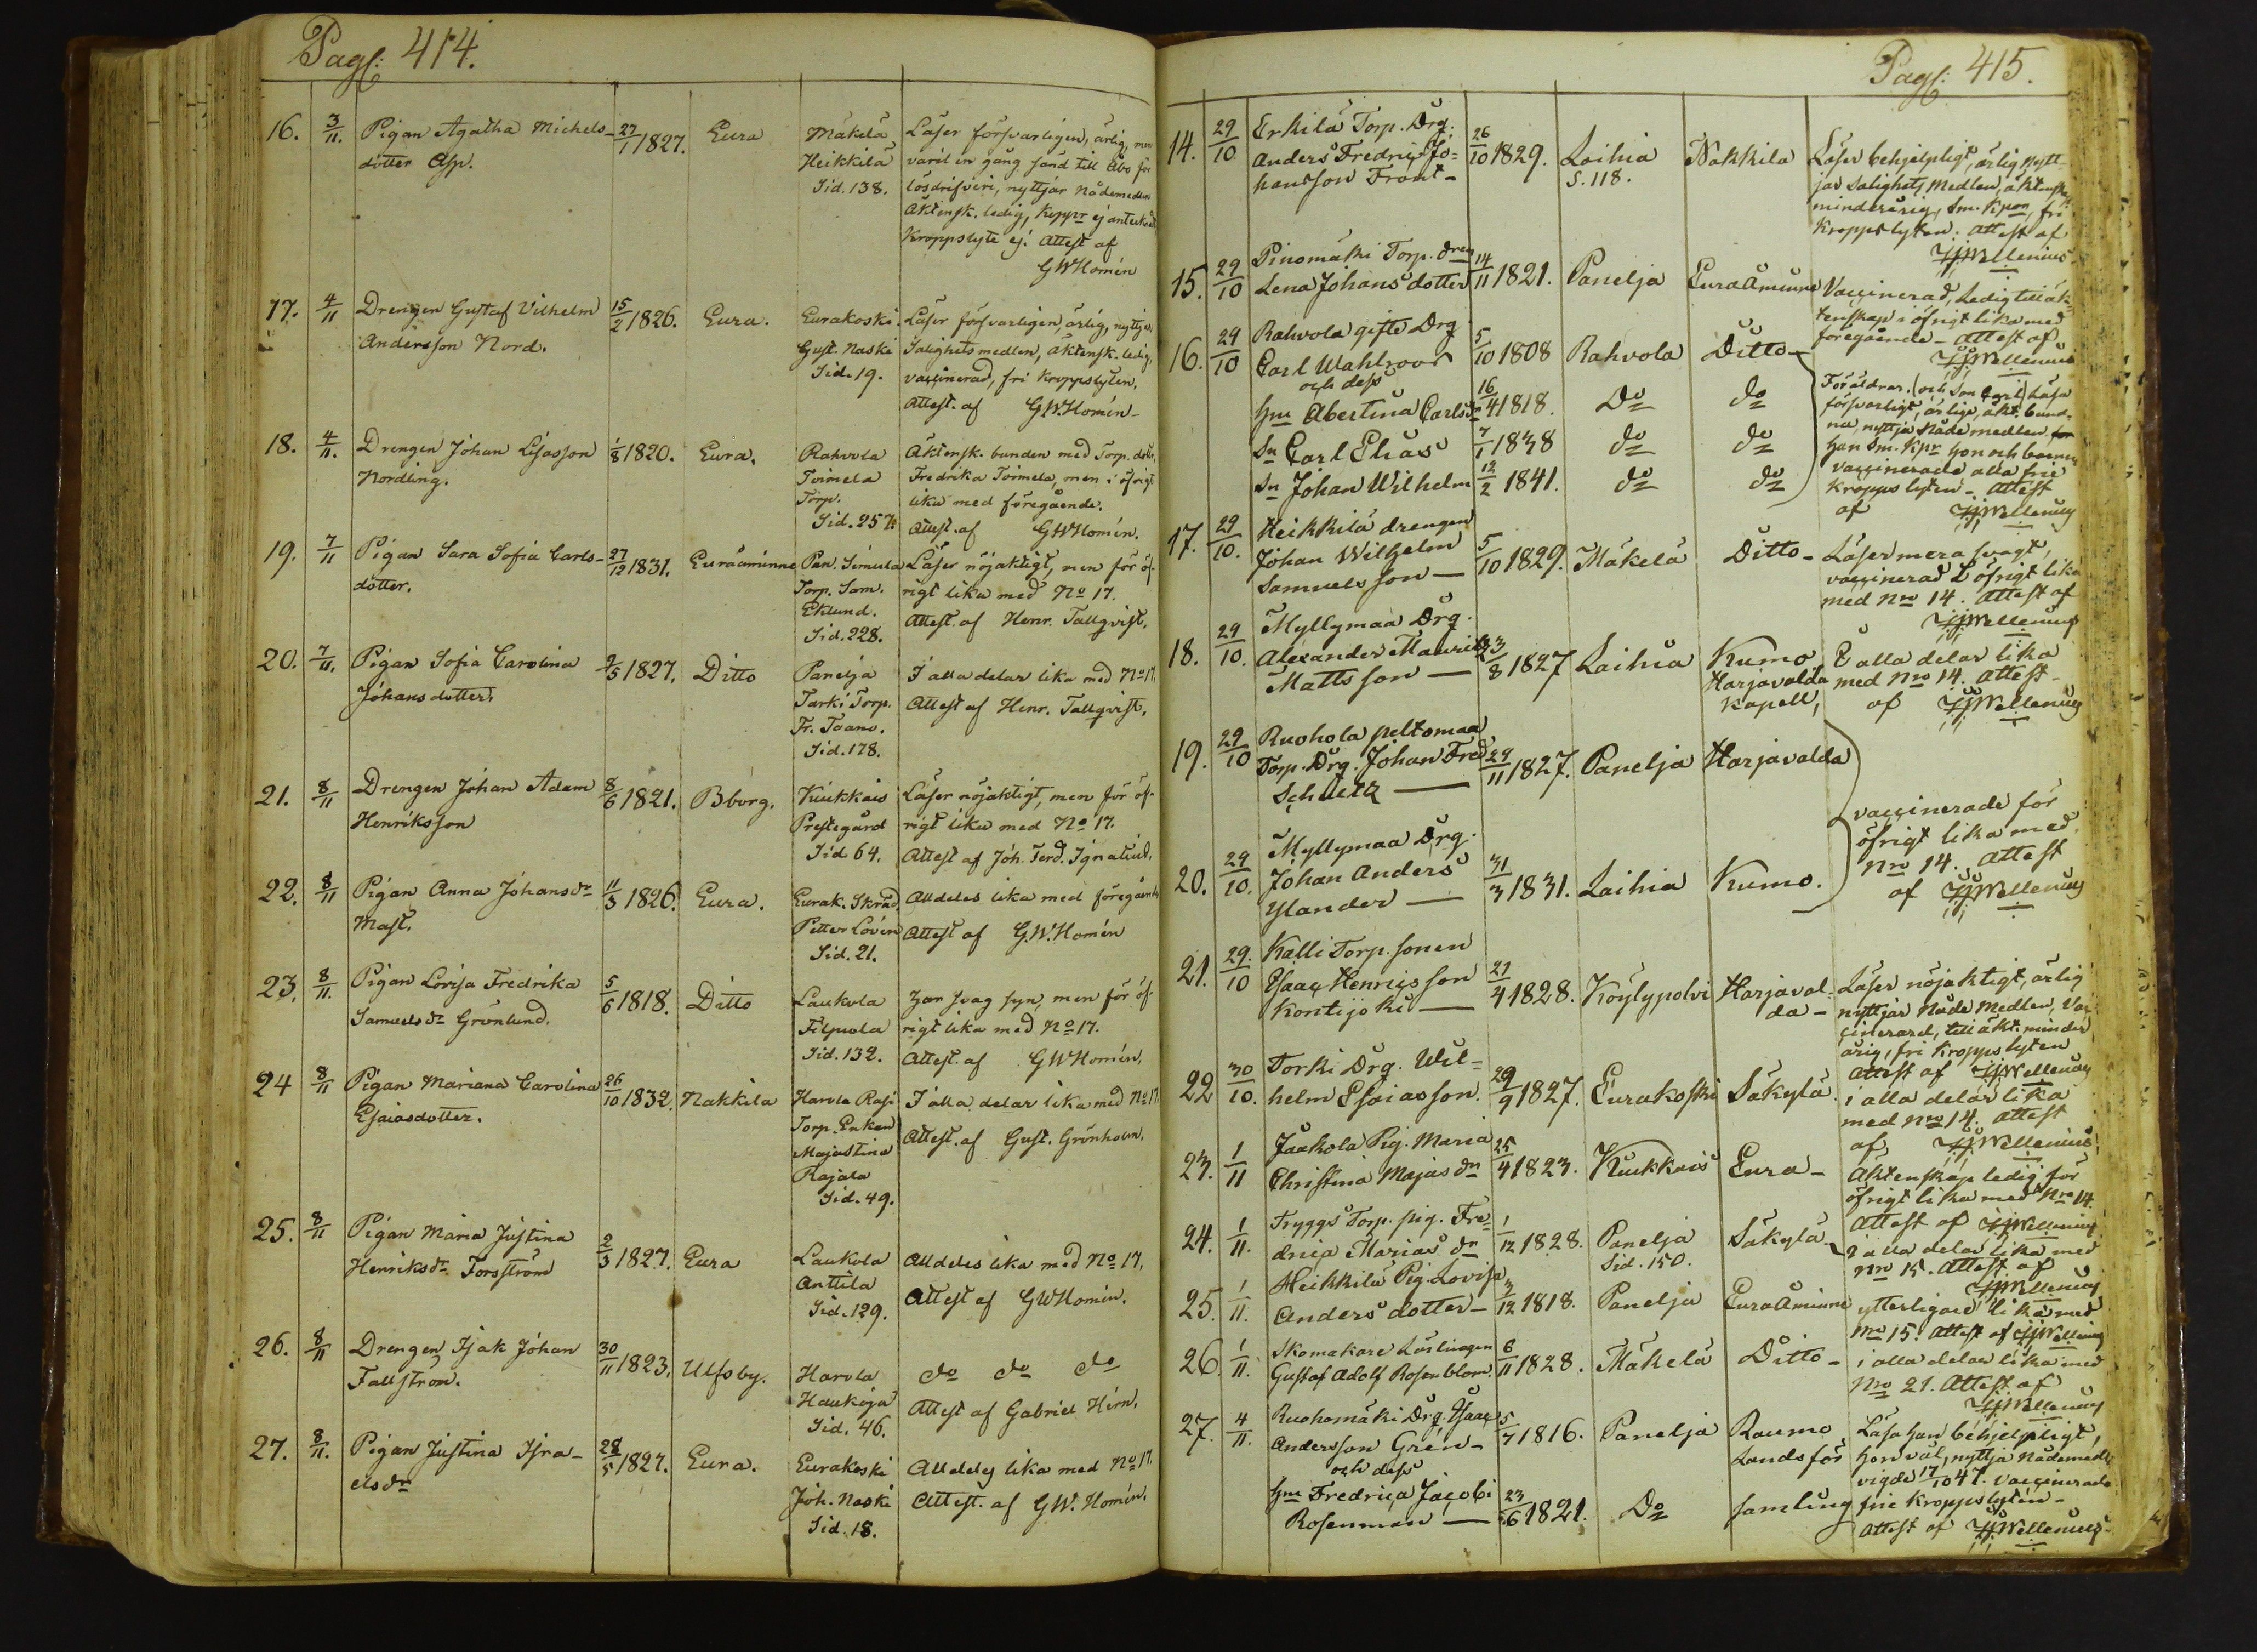 Pag: 414.
16. 3/11. Pigan Agatha Michels- 27/1 1827. Eura Mäkelä Läser försvarligen, ärlig, men
dotter Asp. Heikkilä varit en gång sänd till Åbo för
Sid. 138. lösdrifveri, nyttjar nådemedlen
Äktensk. ledig, koppr ej antecknade
Kroppslyte ej. Attest af
GWHomén
17. 4/11 Drengen Gustaf Vilhelm 15/2 1826. Eura. Eurakoski. Läser försvarligen, ärlig, nyttjar
Andersson Nord. Gust. Naski Salighetsmedlen, äktensk. ledig,
Sid. 19. vaccinerad, fri kroppslyten.
Attest. af GW.Homén-
18. 4/11. Drengen Johan Lisasson 1/8 1820. Eura. Rahvola Äktensk. bunden med Torp. dott.
Nordling. Toimela Fredrika Toimela, men i öfrigt
Torp. lika med föregående.
Sid. 257. Attest. af GWHomén.
19. 7/11 Pigan Sara Sofia Carls- 27/12 1831. Euraåminne Pan. Simula Läser nöjaktigt, men för öf-
dotter. Torp. Sam. rigt lika med No 17.
Eklund. Attest. af Henr. Tallqvist.
Sid. 228.
20. 7/11. Pigan Sofia Carolina 2/5 1827. Ditto Panelja I alla delar lika med No 17
Johansdotter. Tarki Torp. Attest af Henr. Tallqvist.
Fr. Toano.
Sid. 178.
21. 8/11 Drengen Johan Adam 8/6 1821. Bborg. Kiukkais Läser nöjaktigt, men för öf-
Henriksson Prestegård rigt lika med No 17.
Sid 64. Attest af Joh. Ferd. Ignatius.
22. 8/11 Pigan Anna Johansdr 11/3 1826. Eura. Eurak. Skräd. Alldeles lika med föregående
Mast. Petter Lovén Attest af G.W.Homén
Sid. 21.
23. 8/11. Pigan Lovisa Fredrika 5/6 1818. Ditto Laukola har svag syn, men för öf-
Samuelsdr Grönlund. Filpula rigt lika med No 17.
Sid. 132. Attest. af GWHomén.
24 8/11 Pigan Mariana Carolina 26/10 1832. Nakkila Harola Rasi I alla delar lika med No 17
Esaiasdotter. Torp. Enkan Attest. af Gust. Grönholm.
Majastina
Rajala
Sid. 49.
25. 8/11 Pigan Maria Justina 2/3 1827. Eura Laukola Alldeles lika med No 17.
Henriksdr Forsström Anttila Attest af GWHomén.
Sid. 129.
26. 8/11 Drengen Isak Johan 30/11 1823. Ulfsby. Harola do do do
Fallström. Haukioja Attest af Gabriel Hirn.
Sid. 46.
27. 8/11. Pigan Justina Isra- 28/5 1827. Eura. Eurakoski Alldeles lika med No 17.
elsdr Joh. Naski Attest. af GW. Homén.
Sid. 18.
Pag: 415.
14. 29/10 Erkilä Torp. Drg. 26/10 1829. Laihia Nakkila Läser behjelpligt, ärlig nytt-
Anders Fredric Jo- S. 118. jar Salighets medlen, äktensk.
hansson Front- minderårig, Sm. Kpor, fri
Kroppslyten. Attest af
JJWellenius
15. 29/10 Pinomäki Torp. 14/11 1821. Panelja EuraÅminne Vaccinerad, Ledig till äk-
Lena Johans dotter tenskap i öfrigt lika med
föregående- Attest af
JJWellenius
16. 29/10 Rahvola gifte Drg 5/10 1808 Rahvola Ditto-
Carl Wahlroos
och dess
Hu Abertina Carlsdr 16/4 1818. Do do Föräldrar (och Son Carl) läsa
försvarligt, ärlige, äkt. bund-
Sn Carl Elias 7/1 1838 do do ne, nyttja Nådemedlen
han Sm. Kpr hon och barnen
Sn Johan Wilhelm 12/2 1841. do do vaccinerade alla frie
kropps lyten- Attest
af JJWellenius
17. 29/10. Heikkilä drengen 5/10 1829. Mäkelä Ditto- Läser mera svagt,
Johan Wilhelm vaccinerad I öfrigt lika
Samuelsson- med Nro 14. Attest af
JJWellenius
18. 29/10. Myllymaa Drg. 23/8 1827 Laihia Kumo I alla delar lika
Alexander Maurits Harjavalda med Nro 14. Attest-
Mattsson- kapell, af JJWellenius
19. 29/10 Ruohola peltomaa 29/11 1827. Panelja Harjavalda
Torp. Drg. Johan Fred.
Schultz-
vaccinerade för
öfrigt lika med
Nro 14. Attest
af JJWellenius
20. 29/10. Myllymaa Drg. 31/3 1831. Laihia Kumo.
Johan Anders
Ylander-
21. 29/10 Kalli Torp. sonen 21/4 1828. Köylypolvi Harjaval- Läser nöjaktigt, ärlig
Isaac Henricsson da- nyttjar Nåde Medlen, Vac
Kontijoki- cinerard, till äkt. minder
årig, fri kroppslyten
Attest af JJWellenius
22 30/10. Torki Drg. Wil- 29/9 1827. Eurakoski Säkylä. i alla delar lika
helm Esaiasson. med Nro 14. Attest
af JJWellenius
23. 1/11 Jaakola Pig. Maria 25/4 1823. Kiukkais Eura- Äktenskap ledig, för
Christina Majasdr öfrigt lika med Nro 14.
Attest af JJWellenius
24. 1/11. Tryggs Torp. pig. Fre- 1/12 1828. Panelja Säkylä- I alla delar lika med
drica Marias dr Sid. 150. Nro 15. Attest af
JJWellenius
25. 1/11. Heikkilä Pig. Lovisa 3/12 1818. Panelja EuraÅminne ytterligare lika med
Anders dotter- Nro 15. Attest af JJWellenius
26. 1/11. Skomakare Lärlingen 6/11 1828. Mäkelä Ditto- i alla delar lika med
Gustaf Adolf Rosenblom. Nro 21. Attest af
JJWellenius
27. 4/11. Ruohomäki Drg. Isaac 5/7 1816. Panelja Raumo Läsa han behjelpligt,
Andersson Grén- Landsför hon väl, nyttja Nådemedl.
och dess vigde 17/10 47. vaccinerade
Hu Fredrica Jacobi 23/6 1821. Do samling frie kroppslyten-
Rosenman- Attest af JJWellenius